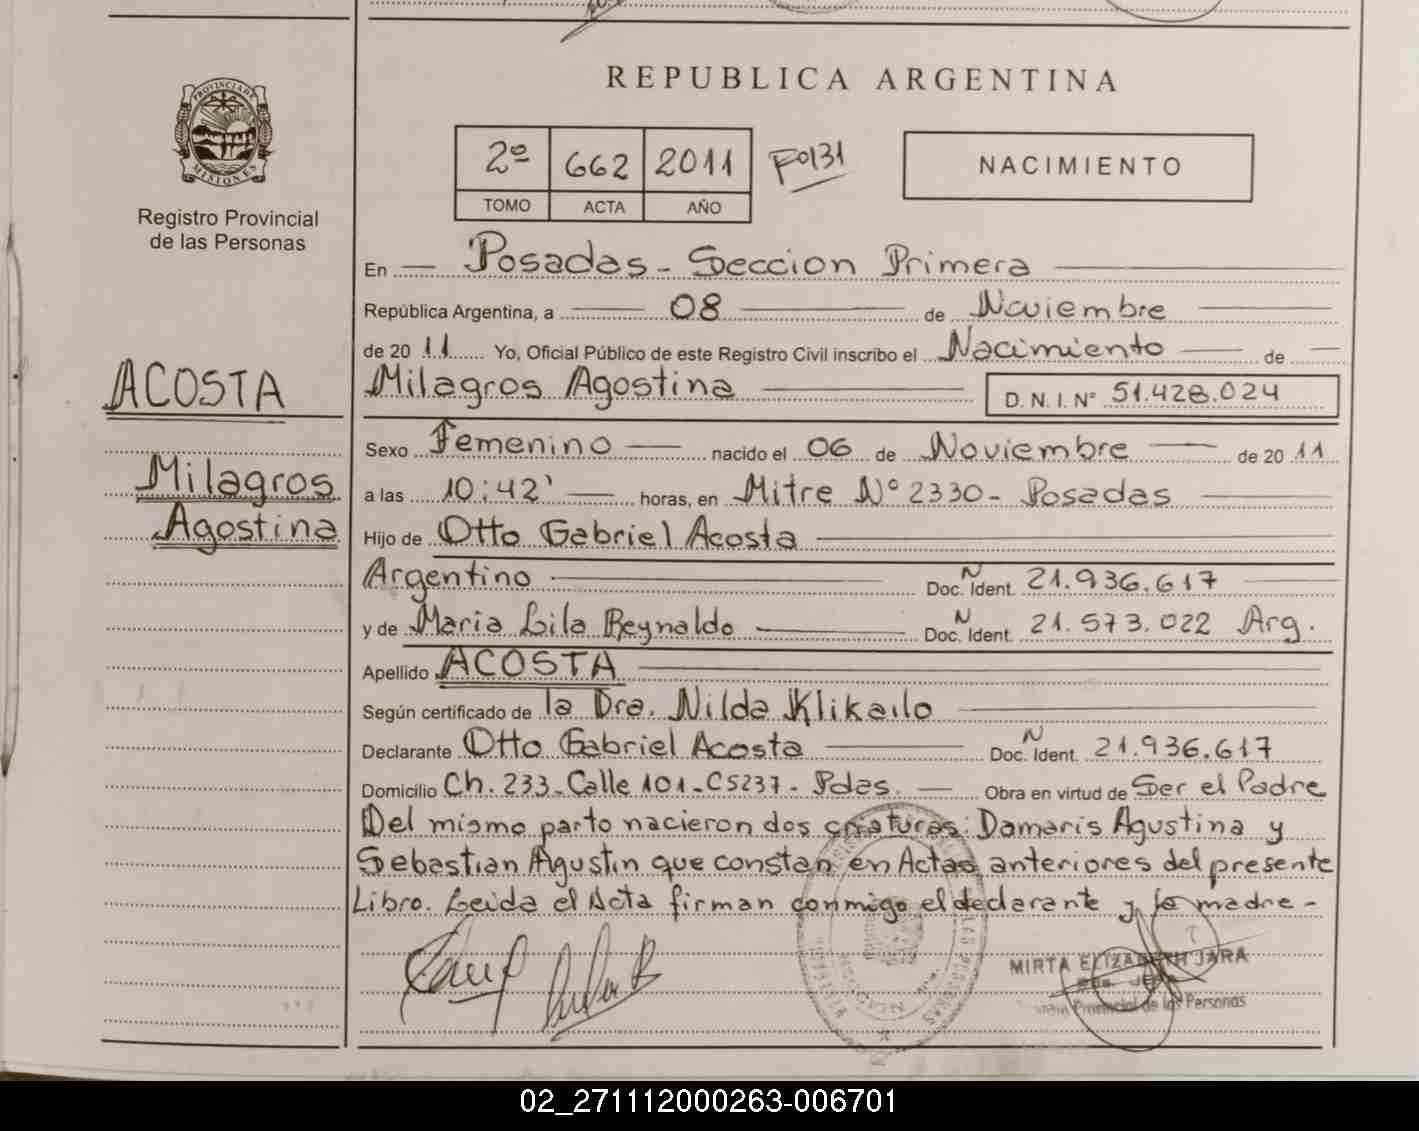 REPUBLICA ARGENTINA
PROVINCIA DE
MISIONES
Registro Provincial
de las Personas
2º 662 2011 Fº131
TOMO ACTA AÑO
NACIMIENTO
En Posadas - Seccion Primera
República Argentina, a 08 de Noviembre
de 2011 Yo, Oficial Público de este Registro Civil inscribo el Nacimiento de
ACOSTA
Milagros Agostina
Milagros Agostina D. N. I. Nº 51.428.024
Sexo Femenino nacido el 06 de Noviembre de 2011
a las 10:42' horas, en Mitre Nº 2330 - Posadas
Hijo de Otto Gabriel Acosta
Argentino Doc. N Ident. 21.936.617
y de Maria Lila Reynaldo Doc. N Ident. 21.573.022 Arg.
Apellido ACOSTA
Según certificado de la Dra. Nilda Klikailo
Declarante Otto Gabriel Acosta Doc. N Ident. 21.936.617
Domicilio Ch. 233 - Calle 101 - C5237 - Pdas. Obra en virtud de Ser el Padre
Del mismo parto nacieron dos criaturas: Damaris Agustina y
Sebastian Agustin que constan en Actas anteriores del presente
Libro. Leida el Acta firman conmigo el declarante y la madre -
MIRTA ELIZABETH JARA
Provincial de las Personas
02_271112000263-006701